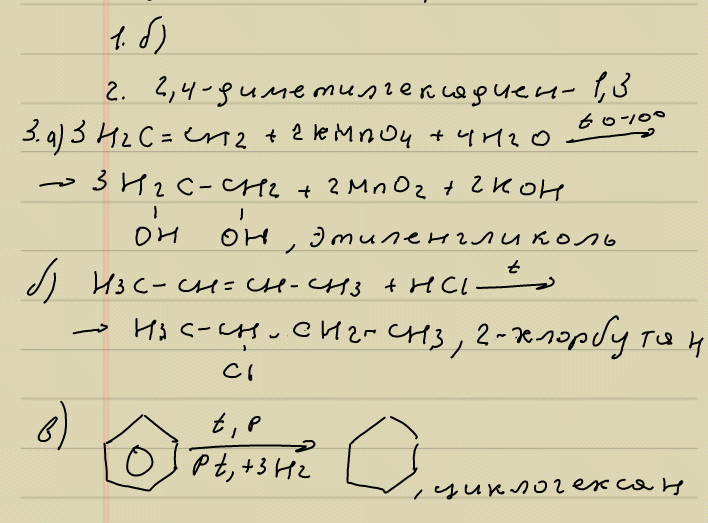 1. б)
2. 2,4-диметилгексадиен-1,3
3. а) 3 H2C=CH2 + 2KMnO4 + 4H2O t 0-10°
→ 3 H2C-CH2 + 2MnO2 + 2KOH
OH OH, этиленгликоль
б) H3C-CH=CH-CH3 + HCl t
→ H3C-CH-CH2-CH3, 2-хлорбутан
Cl
в) t, P
Pt, +3H2
, циклогексан